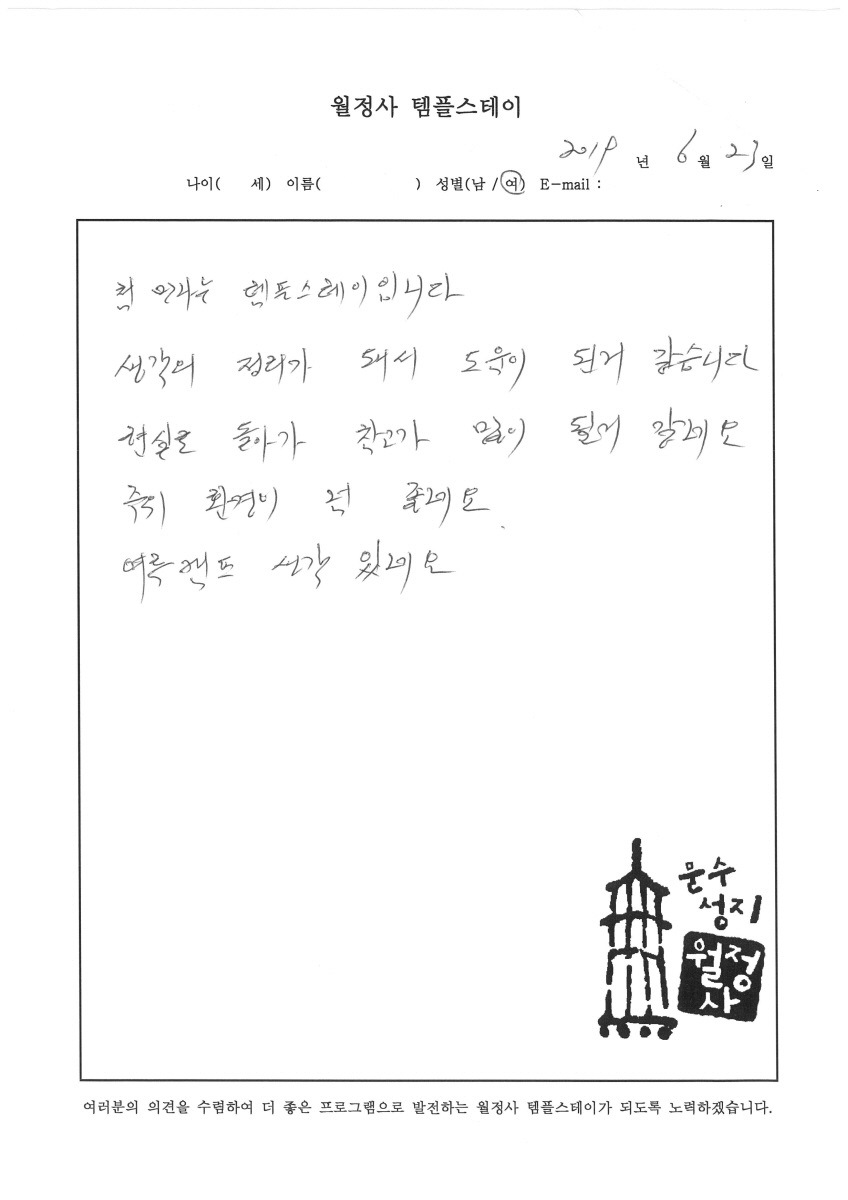 월정사 템플스테이
2019 년 6 월 23 일
나이( 세) 이름( ) 성별(남 / 여) E-mail :
첨 템플스테이입니다
생각의 정리가 돼서 도움이 된거 같습니다
현실로 돌아가 참고가 많이 될거 같네요
주위 환경이 넘 좋네요
여름캠프 생각 있네요
문수
성지
월정
사
여러분의 의견을 수렴하여 더 좋은 프로그램으로 발전하는 월정사 템플스테이가 되도록 노력하겠습니다.